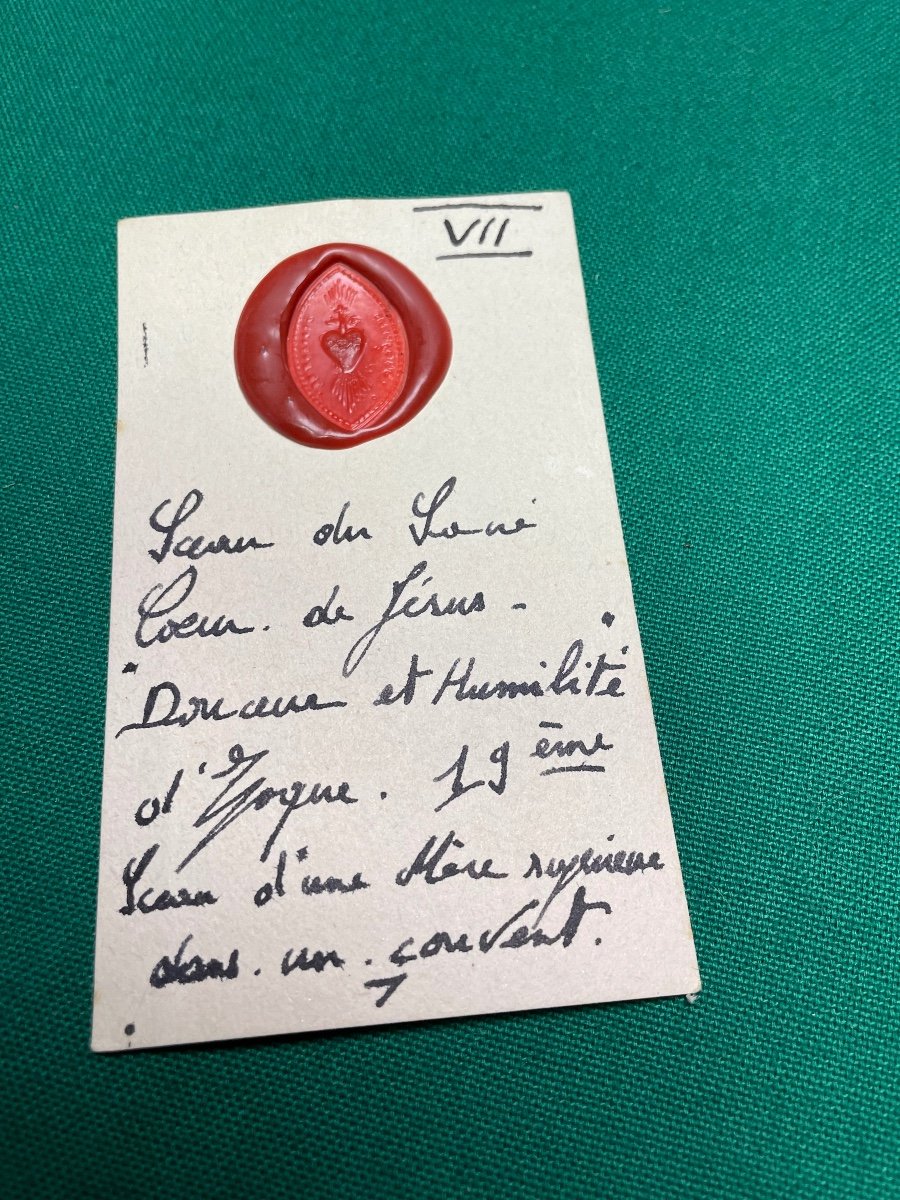 VII
Sceau du Sacré
Coeur. de Jésus -
"Douceur et Humilité"
d'Epoque. 19ème
Sceau d'une Mère supérieure
dans. un. couvent.